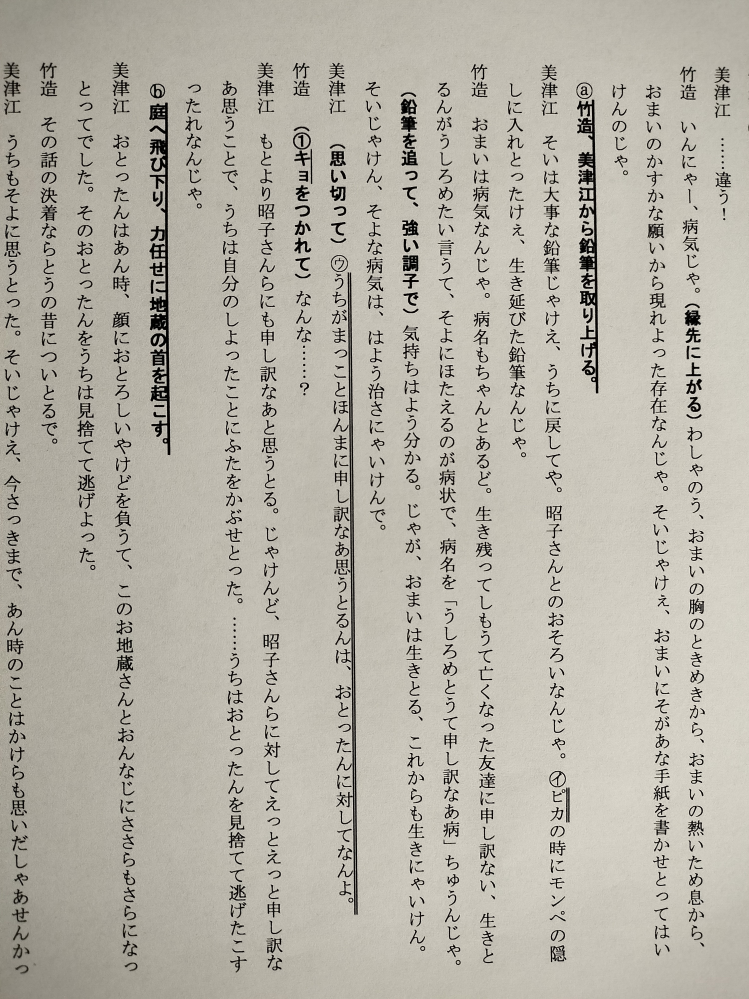 美津江　……違う！
竹造　いんにゃー、病気じゃ。（縁先に上がる）わしゃのう、おまいの胸のときめきから、おまいの熱いため息から、
おまいのかすかな願いから現れよった存在なんじゃ。そいじゃけぇ、おまいにそがあな手紙を書かせとってはい
けんのじゃ。
ⓐ竹造、美津江から鉛筆を取り上げる。
美津江　そいは大事な鉛筆じゃけえ、うちに戻してや。昭子さんとのおそろいなんじゃ。㋑ピカの時にモンペの隠
しに入れとったけぇ、生き延びた鉛筆なんじゃ。
竹造　おまいは病気なんじゃ。病名もちゃんとあるど。生き残ってしもうて亡くなった友達に申し訳ない、生きと
るんがうしろめたい言うて、そよにほたえるのが病状で、病名を「うしろめとうて申し訳なあ病」ちゅうんじゃ。
（鉛筆を追って、強い調子で）気持ちはよう分かる。じゃが、おまいは生きとる、これからも生きにゃいけん。
そいじゃけん、そよな病気は、はよう治さにゃいけんで。
美津江　（思い切って）㋒うちがまっことほんまに申し訳なあ思うとるんは、おとったんに対してなんよ。
竹造　（①キョをつかれて）なんな……？
美津江　もとより昭子さんらにも申し訳なあと思うとる。じゃけんど、昭子さんらに対してえっとえっと申し訳な
あ思うことで、うちは自分のしよったことにふたをかぶせとった。……うちはおとったんを見捨てて逃げたこす
ったれなんじゃ。
ⓑ庭へ飛び下り、力任せに地蔵の首を起こす。
美津江　おとったんはあん時、顔におとろしいやけどを負うて、このお地蔵さんとおんなじにささらもさらになっ
とってでした。そのおとったんをうちは見捨てて逃げよった。
竹造　その話の決着ならとうの昔についとるで。
美津江　うちもそよに思うとった。そいじゃけえ、今さっきまで、あん時のことはかけらも思いだしゃあせんかっ